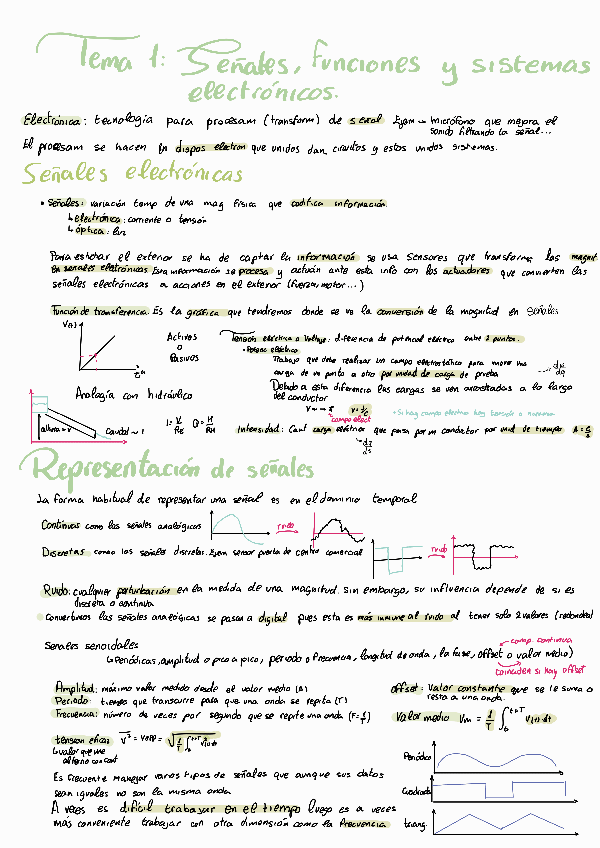 Tema 1: Señales, funciones y sistemas
electrónicos.
Electrónica: tecnología para procesam (transform) de señal Ejem → micrófono que mejora el
sonido filtrando la señal...
El procesam se hacen en dispos electron que unidos dan circuitos y estos unidos sistemas.
Señales electrónicas
• Señales: variación temp de una mag física que codifica información.
↳ electrónica: corriente o tensión
↳ óptica: luz
Para estudiar el exterior se ha de captar la información se usa sensores que transforma las magnit.
en señales eletrónicas Esta información se procesa y actúan ante esta info con los actuadores que convierten las
señales electrónicas a acciones en el exterior (fuerza, motor...)
Función de transferencia. Es la gráfica que tendremos donde se ve la conversión de la magnitud en señales
V(s)
Activos
o
Pasivos
Tensión eléctrica o Voltaje: diferencia de potencial eléctrico entre 2 puntos.
• Potenc eléctrico
Trabajo que debe realizar un campo electrostático para mover una
carga de un punto a otro por unidad de carga de prueba
Debido a esta diferencia las cargas se ven arrastradas a lo largo
del conductor
Analogía con hidráulico
altura ~ V
caudal ~ I
campo elect
+ Si hay campo electrico hay tensión o
Intensidad: Cant carga eléctrica que pasa por un conductor por unid de tiempo
Representación de señales
La forma habitual de representar una señal es en el dominio temporal
Continuas como las señales analógicas
ruido
Discretas como las señales discretas. Ejem sensor puerta de centro comercial
ruido
Ruido: cualquier perturbación en la medida de una magnitud. Sin embargo, su influencia depende de si es
discreta o continua
• Convertimos las señales analógicas se pasan a digital pues esta es más inmune al ruido al tener solo 2 valores (redondeo)
Señales senoidales
comp. continua
↳ Periódicas, amplitud o pico a pico, periodo o frecuencia, longitud de onda, la fase, offset o valor medio)
coinciden si hay offset
Amplitud: máximo valor medido desde el valor medio (A)
Periodo: tiempo que transcurre para que una onda se repita (T)
Frecuencia: número de veces por segundo que se repite una onda (F=1/T)
Offset: Valor constante que se le suma o
resta a una onda.
Valor medio Vm = 1/T ∫ V(t)·dt
tensión eficaz
Es frecuente manejar varios tipos de señales que aunque sus datos
sean iguales no son la misma onda
A veces es difícil trabajar en el tiempo luego es a veces
más conveniente trabajar con otra dimensión como la frecuencia
Periódica
Cuadrada
triang.